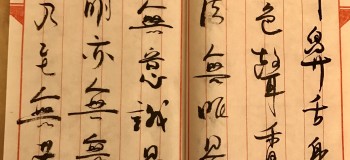 鼻舌身
色聲香
法無眼界
無意識界
明亦無無
乃至無